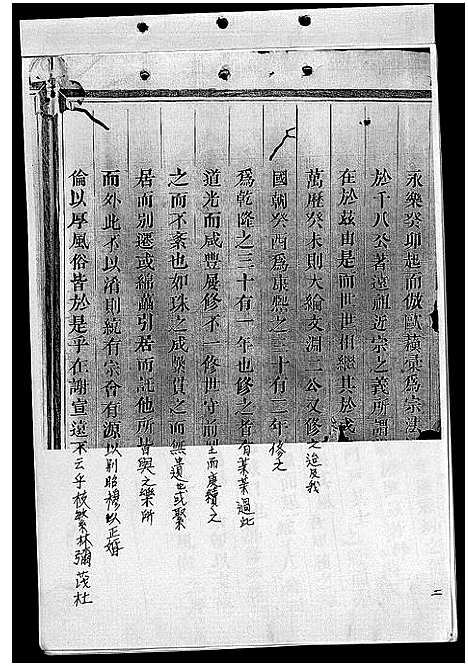 永樂癸卯起而倣歐橫彙爲宗法
於十八公著遠祖近宗之義所謂
在於茲由是而世世相繼其於戎
萬曆癸未則大綸友淵二公又修之迨及我
國朝癸酉爲康熙之三十有二年修之
爲乾隆之三十有一年也修之者有某某過此
道光而咸豐屢修不一修世守而型而慶續之
之而不紊也如珠之咸貫之而無遺也或聚
居而別遷或綿蔓引居而託他所皆與之樂所
而外此不以濟則統有宗合有源以別昭穆以正婚
倫以厚風俗皆於是乎在謝宣遠不云乎枝繁林彌茂杜
二